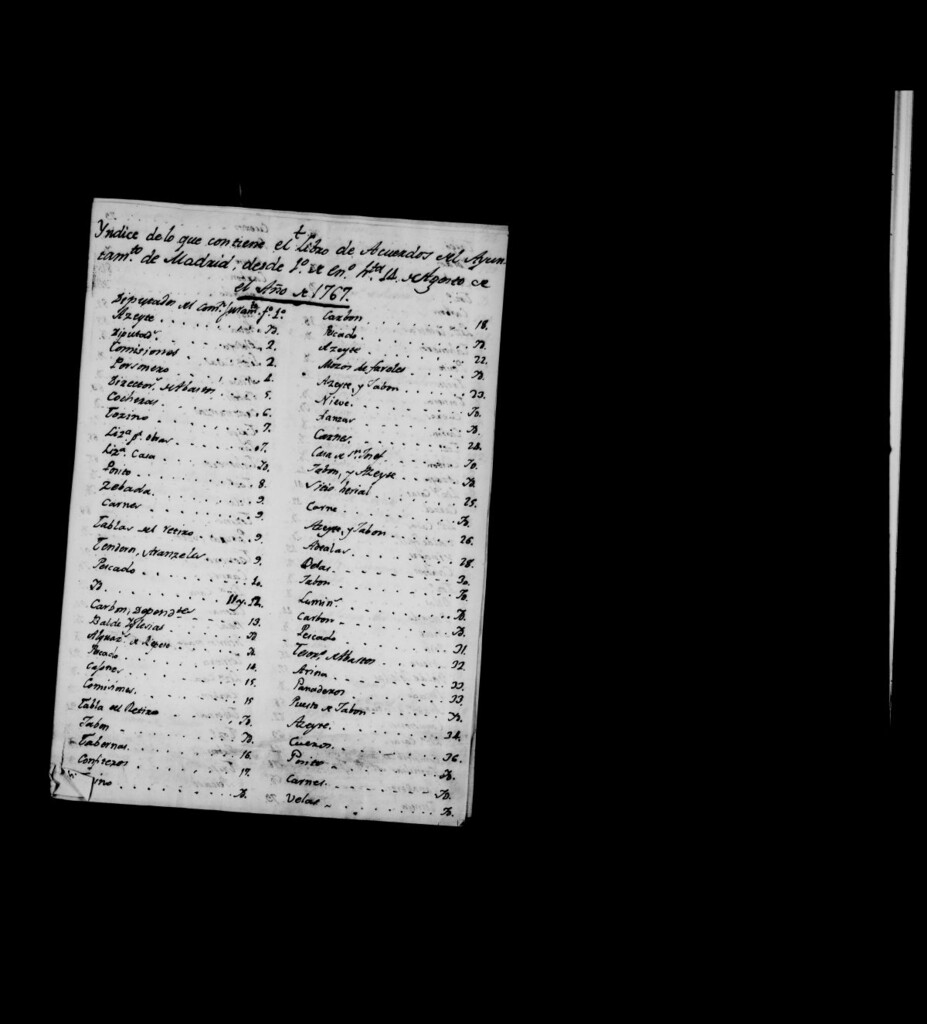 Yndice de lo que contiene el Libro de Acuerdos del Ayun
tam.to de Madrid, desde 1.º de en.º h.ta 14 de Agosto de
el Año de 1767.
Diputados del Com.n Juram.to f.º 1.º
Azeyte . . . . Yd.
Diputad.s . . . . 2.
Comisiones . . . . 2.
Personero . . . . 4.
Director.s de Abastos . . . . 5.
Cocheras . . . . 6.
Tozino . . . . 7.
Liz.a p.a obras . . . . 7.
Liz.a Casa . . . . Yd.
Posito . . . . 8.
Zebada . . . . 9.
Carnes . . . . 9.
Tablas del Retiro . . . . 9.
Tenderos, Aranzeles . . . . 9.
Pescado . . . . 10.
Yd. . . . . 11 y 12.
Carbon, Depend.tes . . . . 13.
Balde Yglesias . . . . Yd.
Alguac.l de Repeso . . . . Yd.
Pescado . . . . 14.
Cajones . . . . 15.
Comisiones . . . . 15
Tabla del Retiro . . . . Yd.
Jabon . . . . Yd.
Tabernas . . . . 16.
Confiteros . . . . 17.
. . . . Yd.
Carbon . . . . 18.
Pescado . . . . Yd.
Azeyte . . . . 22.
Mozos de faroles . . . . Yd.
Azeyte, y Jabon . . . . 23.
Nieve . . . . Yd.
. . . . Yd.
Carnes . . . . 24.
Casa de S.n Josef . . . . Yd.
Jabon, y Azeyte . . . . Yd.
Sitio herial . . . . 25.
Carne . . . . Yd.
Azeyte, y Jabon . . . . 26.
. . . . 28.
Velas . . . . 30.
Jabon . . . . Yd.
Lumin.s . . . . Yd.
Carbon . . . . Yd.
Pescado . . . . 31.
Tesor.a de Abastos . . . . 32.
Arina . . . . 33.
Panaderos . . . . 33.
Puesto de Jabon . . . . Yd.
Azeyte . . . . 34.
Cueros . . . . 36.
Posito . . . . Yd.
Carnes . . . . Yd.
Velas . . . . Yd.